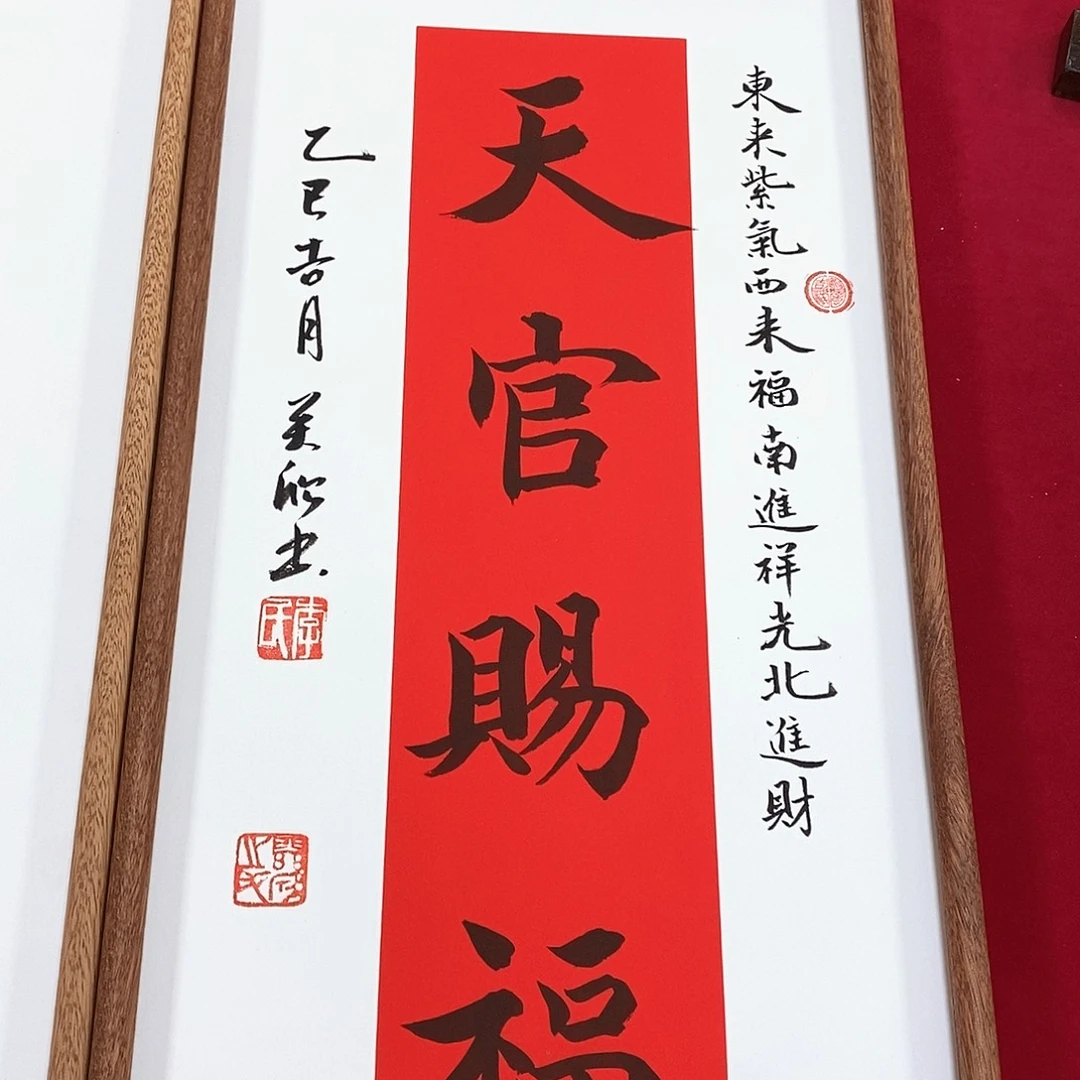 東来紫氣西来福南進祥光北進財
天官賜福
乙巳吉月